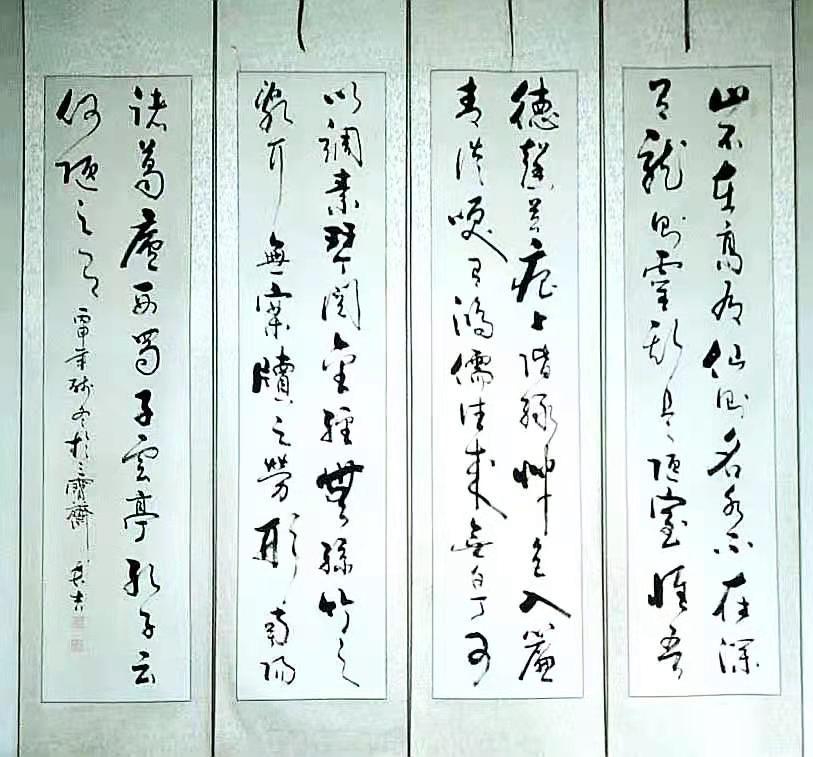 山不在高有仙則名水不在深
有龍則靈斯是陋室惟吾
德馨苔痕上階緑艸色入簾
青談咲有鴻儒往来無白丁可
以調素琴閲金經無絲竹之
亂耳無案牘之勞形南陽
諸葛廬西蜀子雲亭孔子云
何陋之有
丙申年冬於三寶齋